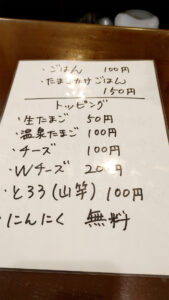 ・ごはん 100円
・たまごかけごはん
150円
トッピング
・生たまご 50円
・温泉たまご 100円
・チーズ 100円
・Wチーズ 200円
・とろろ(山芋) 100円
・にんにく 無料